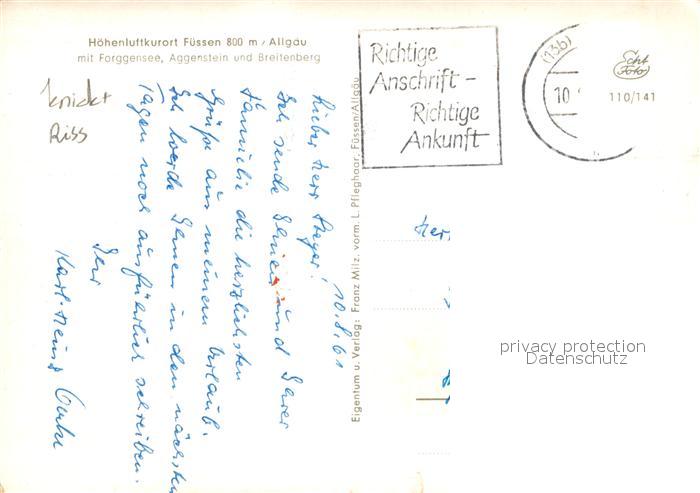 Höhenluftkurort Füssen 800 m / Allgäu
mit Forggensee, Aggenstein und Breitenberg
knickt
Riss
10.8.61
Lieber Herr
Ich sende Ihnen und Ihrer
Familie die herzlichsten
Grüße aus meinem Urlaub.
Ich werde Ihnen in den nächsten
Tagen noch ausführlich schreiben.
Ihr
Karl-Heinz
Eigentum u. Verlag: Franz Milz, vorm. L. Pfleghaar, Füssen/Allgäu
Richtige
Anschrift –
Richtige
Ankunft
(13b)
10
Echt
Foto
110/141
Her
privacy protection
Datenschutz